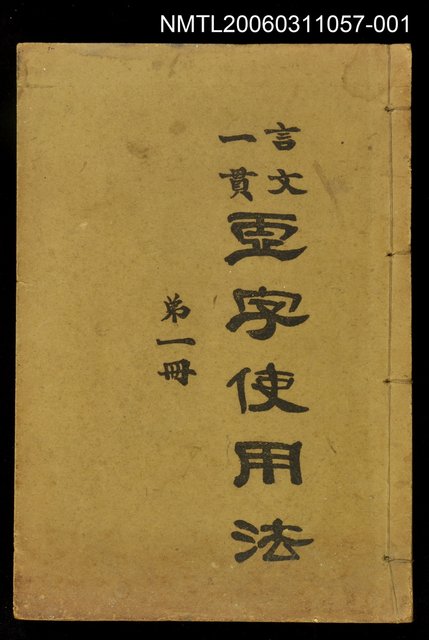 NMTL20060311057-001
言文
一貫
虛字使用法
弟一冊